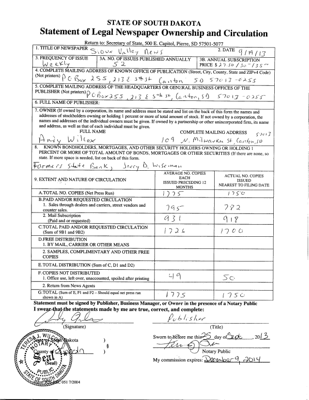 STATE OF SOUTH DAKOTA
Statement of Legal Newspaper Ownership and Circulation
Return to: Secretary of State, 500 E. Capitol, Pierre, SD 57501-5077
1. TITLE OF NEWSPAPER Sioux Valley News 2. DATE 9/19/13
3. FREQUENCY OF ISSUE Weekly 3A. NO. OF ISSUES PUBLISHED ANNUALLY 52 3B. ANNUAL SUBSCRIPTION PRICE
4. COMPLETE MAILING ADDRESS OF KNOWN OFFICE OF PUBLICATION (Street, City, County, State and ZIP+4 Code)
(Not printers) PO Box 255, 213 E 5th St Canton, SD 57013-0255
5. COMPLETE MAILING ADDRESS OF THE HEADQUARTERS OR GENERAL BUSINESS OFFICES OF THE
PUBLISHER (Not printers) PO Box 255, 213 E 5th St, Canton, SD 57013-0255
6. FULL NAME OF PUBLISHER:
7. OWNER (If owned by a corporation, its name and address must be stated and list on the back of this form the names and
addresses of stockholders owning or holding 1 percent or more of total amount of stock. If not owned by a corporation, the
names and addresses of the individual owners must be given. If owned by a partnership or other unincorporated firm, its name
and address, as well as that of each individual must be given.
FULL NAME COMPLETE MAILING ADDRESS
8. KNOWN BONDHOLDERS, MORTGAGES, AND OTHER SECURITY HOLDERS OWNING OR HOLDING 1
PERCENT OR MORE OF TOTAL AMOUNT OF BONDS, MORTGAGES OR OTHER SECURITIES (If there are none, so
state. If more space is needed, list on back of this form.
Farmers State Bank, Jerry D.
9. EXTENT AND NATURE OF CIRCULATION
AVERAGE NO. COPIES EACH ISSUED PRECEDING 12 MONTHS
ACTUAL NO. COPIES ISSUED NEAREST TO FILING DATE
A. TOTAL NO. COPIES (Net Press Run) 1775 1750
B. PAID AND/OR REQUESTED CIRCULATION
1. Sales through dealers and carriers, street vendors and
counter sales. 795 782
2. Mail Subscription
(Paid and or requested) 931 918
C. TOTAL PAID AND/OR REQUESTED CIRCULATION
(Sum of 9B1 and 9B2) 1726 1700
D. FREE DISTRIBUTION
1. BY MAIL, CARRIER OR OTHER MEANS
2. SAMPLES, COMPLIMENTARY AND OTHER FREE
COPIES
E. TOTAL DISTRIBUTION (Sum of C, D1 and D2)
F. COPIES NOT DISTRIBUTED
1. Office use, left over, unaccounted, spoiled after printing 49 50
2. Return from News Agents
G. TOTAL (Sum of E, F1 and F2 - Should equal net press run
shown in A) 1775 1750
Statement must be signed by Publisher, Business Manager, or Owner in the presence of a Notary Public
I swear that the statements made by me are true, correct, and complete:
Publisher
(Signature) (Title)
State of South Dakota )
Sworn to before me this day of Sept. 2013
Notary Public
(Seal)
My commission expires: December 9, 2014